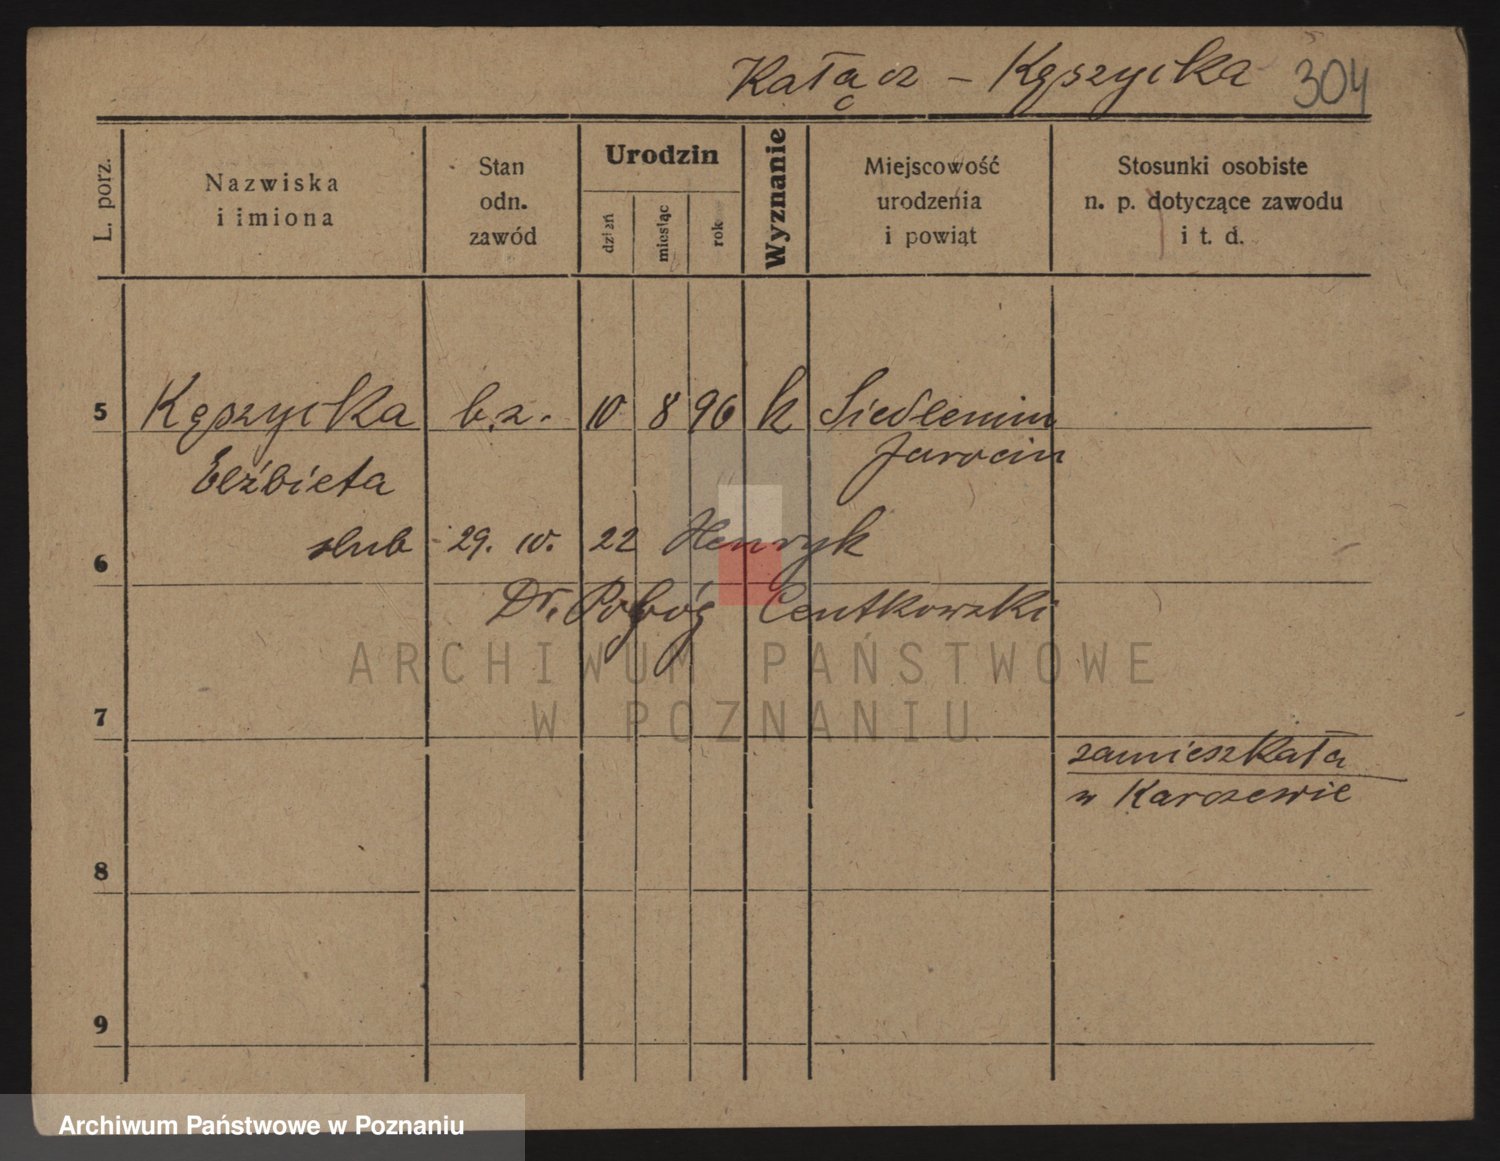 Kałącz - Kęszycka 304
L. porz.
Nazwiska
i imiona
Stan
odn.
zawód
Urodzin
dzień
miesiąc
rok
Wyznanie
Miejscowość
urodzenia
i powiąt
Stosunki osobiste
n. p. dotyczące zawodu
i t. d.
5 Kęszycka b.z. 10 8 96 k Siedlemin
Jarocin
Elżbieta
6 slub - 29. IV. 22 Henryk
Dr. Pobóg Centkowski
ARCHIWUM PAŃSTWOWE
W POZNANIU
7
zamieszkała
w Karczewie
8
9
Archiwum Państwowe w Poznaniu